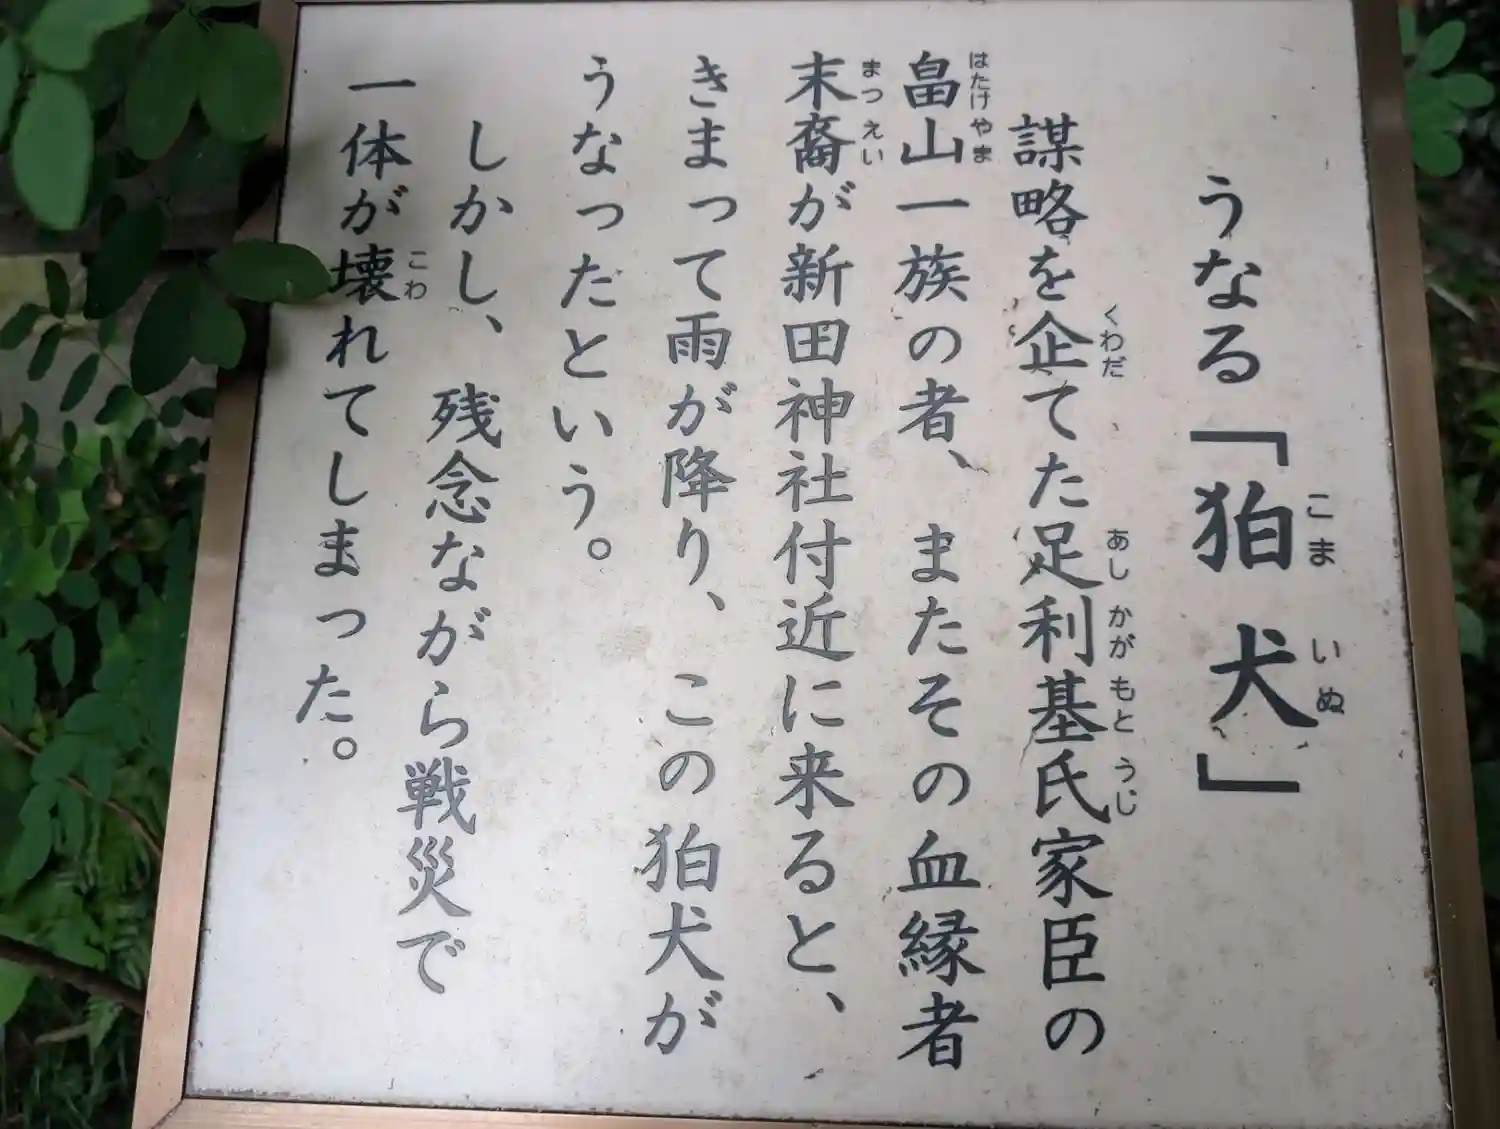 うなる「狛犬」
謀略を企てた足利基氏家臣の
畠山一族の者、またその血縁者
末裔が新田神社付近に来ると、
きまって雨が降り、この狛犬が
うなったという。
しかし、残念ながら戦災で
一体が壊れてしまった。
こま いぬ
くわだ
あし かが もと うじ
はたけ やま
まつ えい
こわ